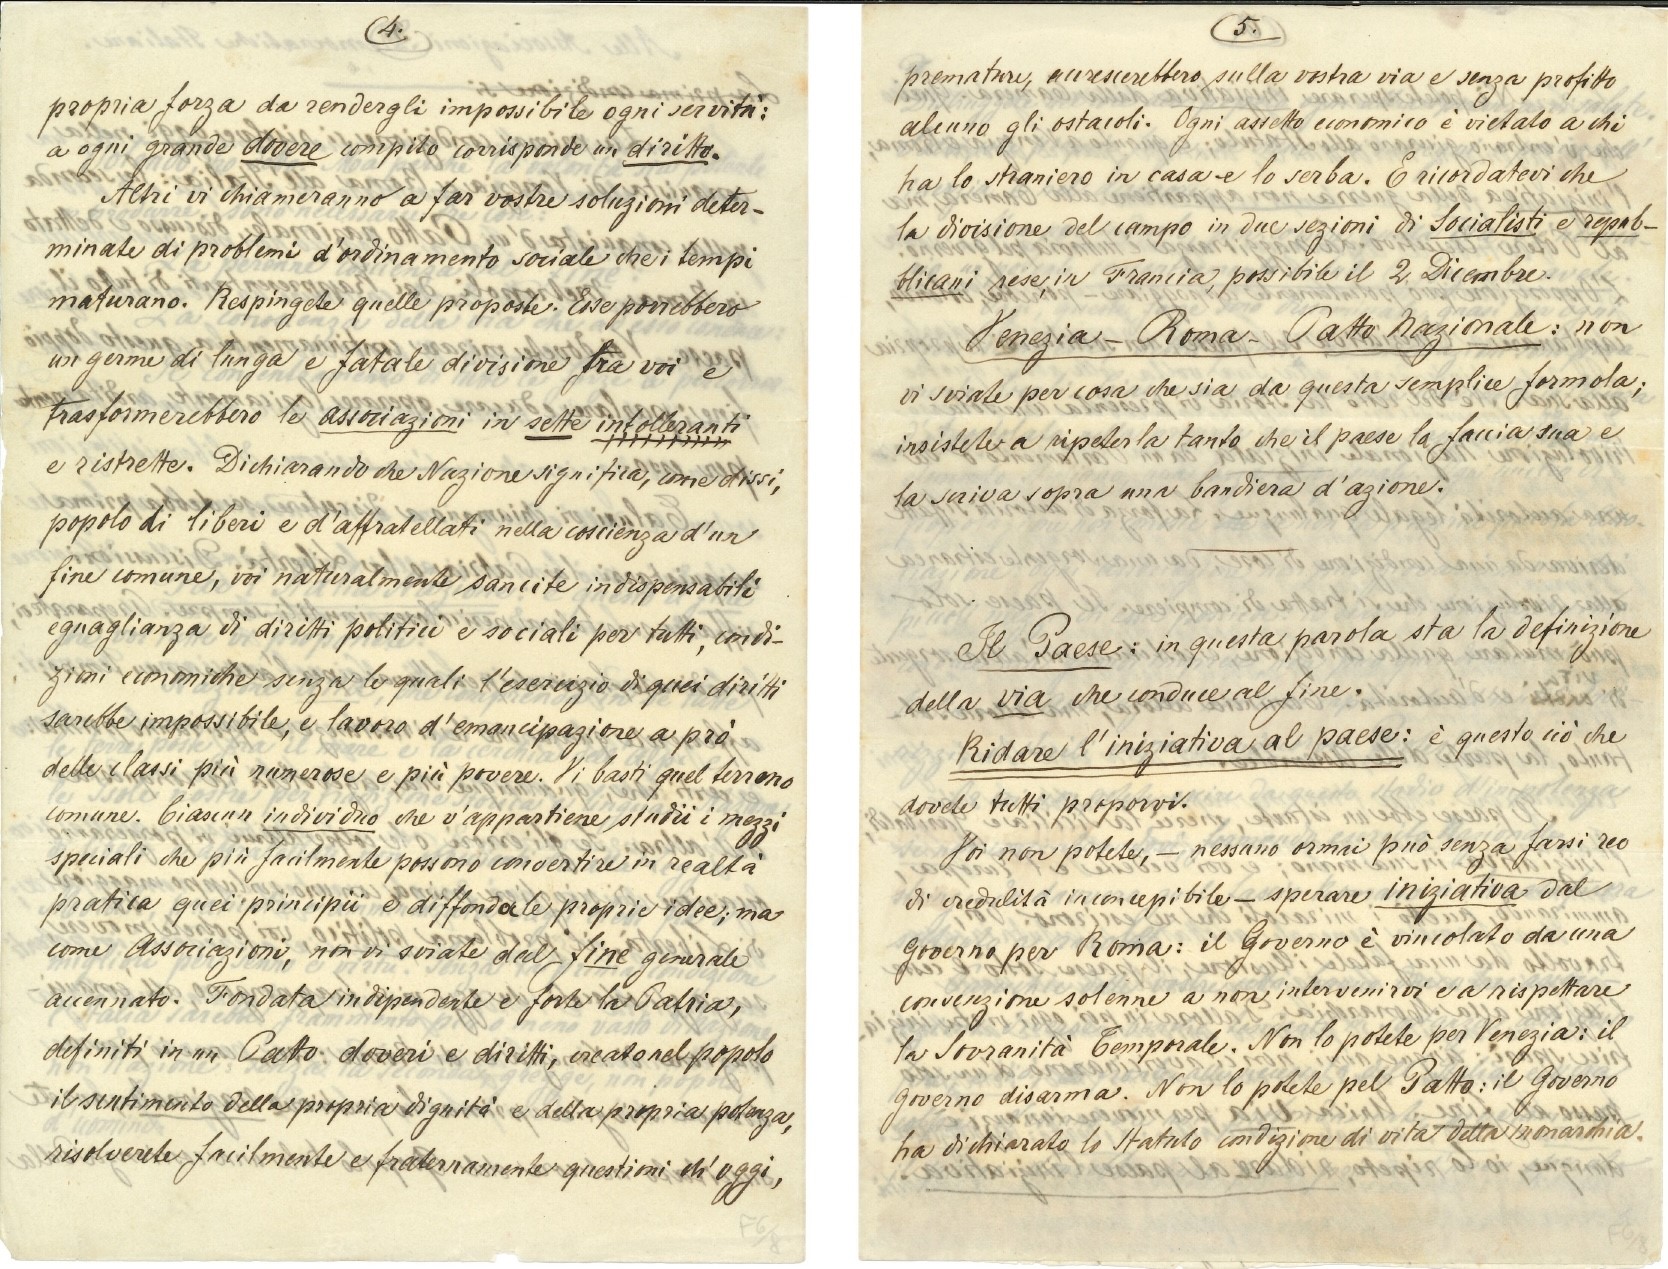 4.
propria forza da rendergli impossibile ogni servitù:
a ogni grande dovere compito corrisponde un diritto.
Altri vi chiameranno a far vostre soluzioni deter-
minate di problemi d'ordinamento sociale che i tempi
maturano. Respingete quelle proposte. Esse porrebbero
un germe di lunga e fatale divisione fra voi e
trasformerebbero le associazioni in sette intolleranti
e ristrette. Dichiarando che Nazione significa, come dissi,
popolo di liberi e d'affratellati nella coscienza d'un
fine comune, voi naturalmente sancite indispensabili
eguaglianza di diritti politici e sociali per tutti, condi-
zioni economiche senza le quali l'esercizio di quei diritti
sarebbe impossibile, e lavoro d'emancipazione a prò
delle classi più numerose e più povere. Vi basti quel terreno
comune. Ciascun individuo che v'appartiene studii i mezzi
speciali che più facilmente possono convertire in realtà
pratica quei principii e diffonda le proprie idee; ma
come Associazioni, non vi sviate dal fine generale
accennato. Fondata indipendente e forte la Patria,
definiti in un Patto doveri e diritti, creato nel popolo
il sentimento della propria dignità e della propria potenza,
risolverete facilmente e fraternamente questioni ch'oggi,
5.
premature, accrescerebbero sulla vostra via e senza profitto
alcuno gli ostacoli. Ogni assetto economico è vietato a chi
ha lo straniero in casa e lo serba. E ricordatevi che
la divisione del campo in due sezioni di Socialisti e repub-
blicani rese, in Francia, possibile il 2 Dicembre.
Venezia - Roma - Patto Nazionale: non
vi sviate per cosa che sia da questa semplice formola;
insistete a ripeterla tanto che il paese la faccia sua e
la scriva sopra una bandiera d'azione.
Il Paese: in questa parola sta la definizione
della via che conduce al fine.
Ridare l'iniziativa al paese: è questo ciò che
dovete tutti proporvi.
Voi non potete, — nessuno ormai può senza farsi reo
di credulità inconcepibile — sperare iniziativa dal
Governo per Roma: il Governo è vincolato da una
convenzione solenne a non intervenirvi e a rispettare
la Sovranità Temporale. Non lo potete per Venezia: il
Governo disarma. Non lo potete pel Patto: il Governo
ha dichiarato lo Statuto condizione di vita della monarchia.